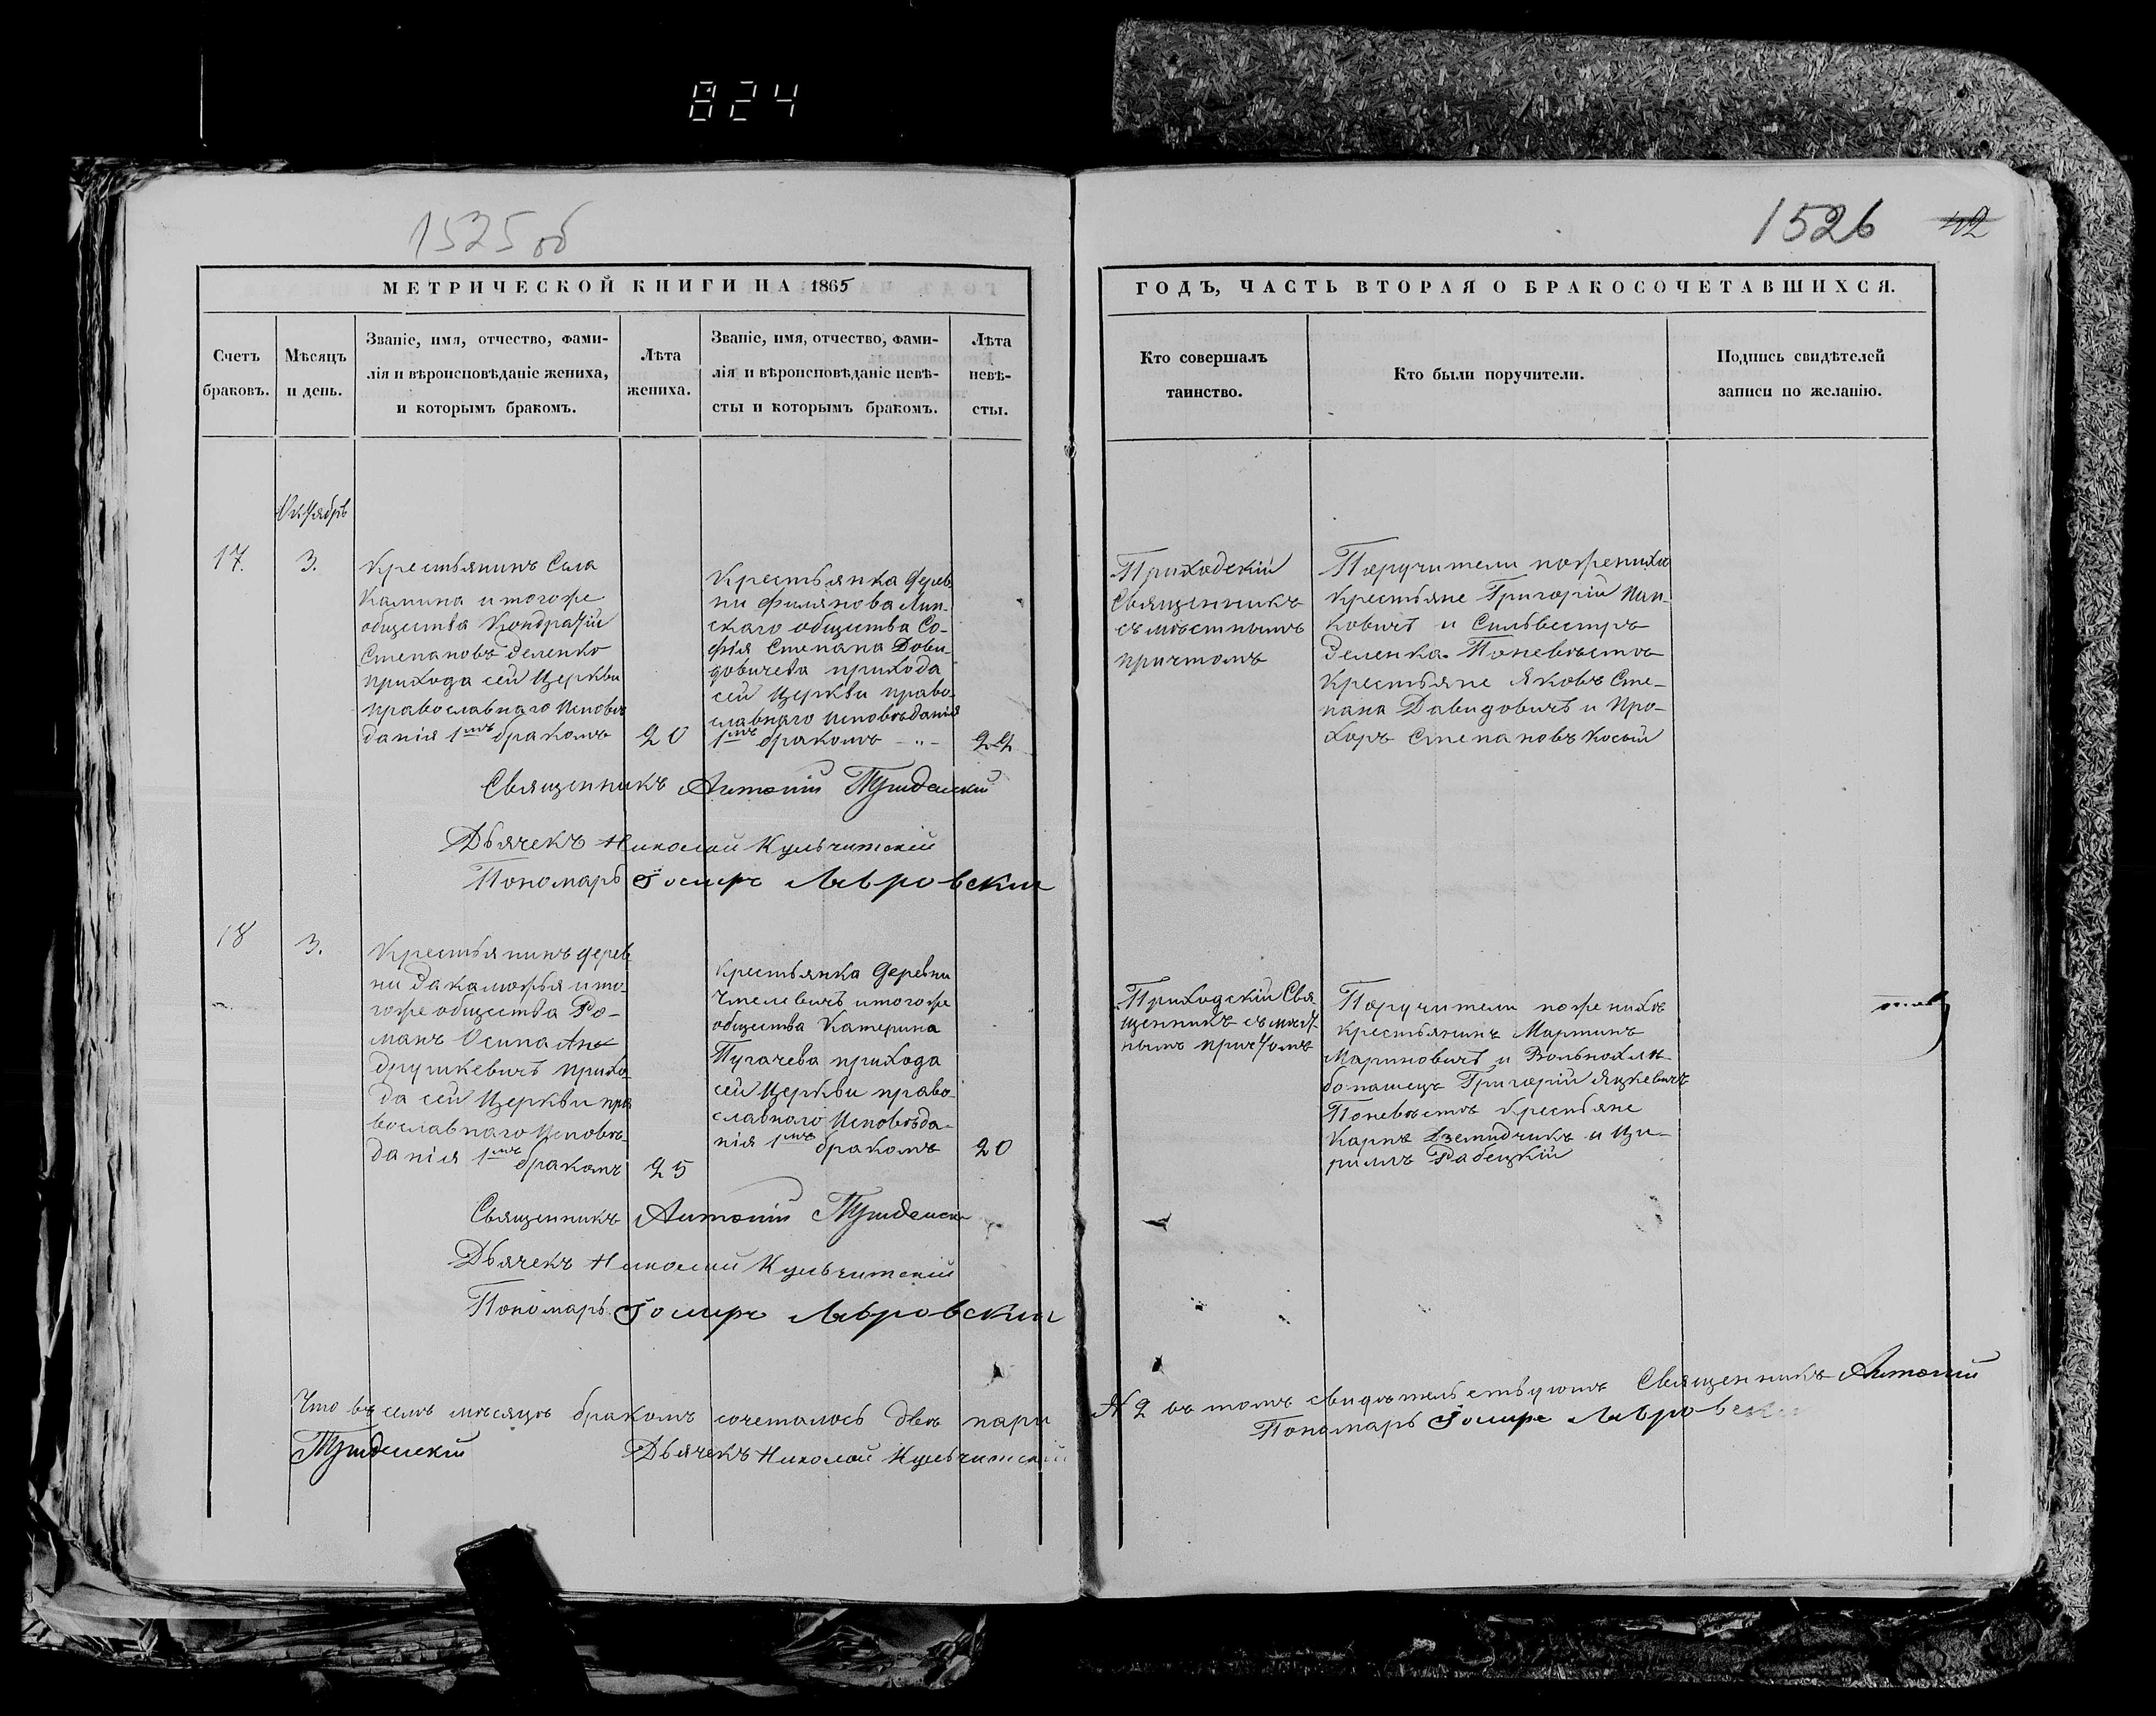 824
1525 об
1526 42
МЕТРИЧЕСКОЙ КНИГИ НА 1865
ГОДЪ, ЧАСТЬ ВТОРАЯ О БРАКОСОЧЕТАВШИХСЯ.
Счетъ
браковъ.
Мѣсяцъ
и день.
Званіе, имя, отчество, фами-
лія и вѣроисповѣданіе жениха,
и которымъ бракомъ.
Лѣта
жениха.
Званіе, имя, отчество, фами-
лія и вѣроисповѣданіе невѣ-
сты и которымъ бракомъ.
Лѣта
невѣ-
сты.
Кто совершалъ
таинство.
Кто были поручители.
Подпись свидѣтелей
записи по желанію.
Октябрь
17.
3.
Крестьянинъ Села
Камина и тогоже
общества Кондратій
Степановъ Деленко
прихода сей Церкви
православнаго исповѣ
данія 1мъ бракомъ
20
Крестьянка дерев
ни Филянова Лип-
скаго общества Со-
фія Степана Дови-
довичева прихода
сей Церкви право-
славнаго исповѣданія
1мъ бракомъ - „ -
22
Приходскій
Священникъ
съ мѣстнымъ
причтомъ
Поручители по женихѣ
крестьяне Григорій Пап-
ковичъ и Сильвестръ
Деленка. По невѣстѣ
крестьяне Яковъ Сте-
пана Давидовичъ и Про-
хоръ Степановъ Косый
Священникъ Антоній
Дьячекъ Николай Кульчитскій
Пономарь Іосифъ Лавровскій
18
3.
Крестьянинъ дерев
ни и то-
гоже общества Ро-
манъ Осипа Ан-
друшкевичъ прихо-
да сей Церкви пра
вославнаго исповѣ
данія 1мъ бракомъ
25
Крестьянка деревни
и тогоже
общества Катерина
Пугачева прихода
сей Церкви право-
славнаго исповѣда-
нія 1мъ бракомъ
20
Приходскій Свя
щенникъ съ мѣст-
нымъ причтомъ
Поручители по женихѣ
крестьянинъ Мартинъ
Мариновичъ и Вольнохлѣ-
бопашецъ Григорій Яцкевичъ
По невѣстѣ крестьяне
Карпъ Дземидчикъ и
Рабецкій
Священникъ Антоній
Дьячекъ Николай Кульчитскій
Пономарь Іосифъ Лавровскій
Что въ семъ мѣсяцѣ бракомъ сочеталось двѣ пары
№ 2 въ томъ свидѣтельствуютъ Священникъ Антоній
Дьячекъ Николай Кульчитскій
Пономарь Іосифъ Лавровскій